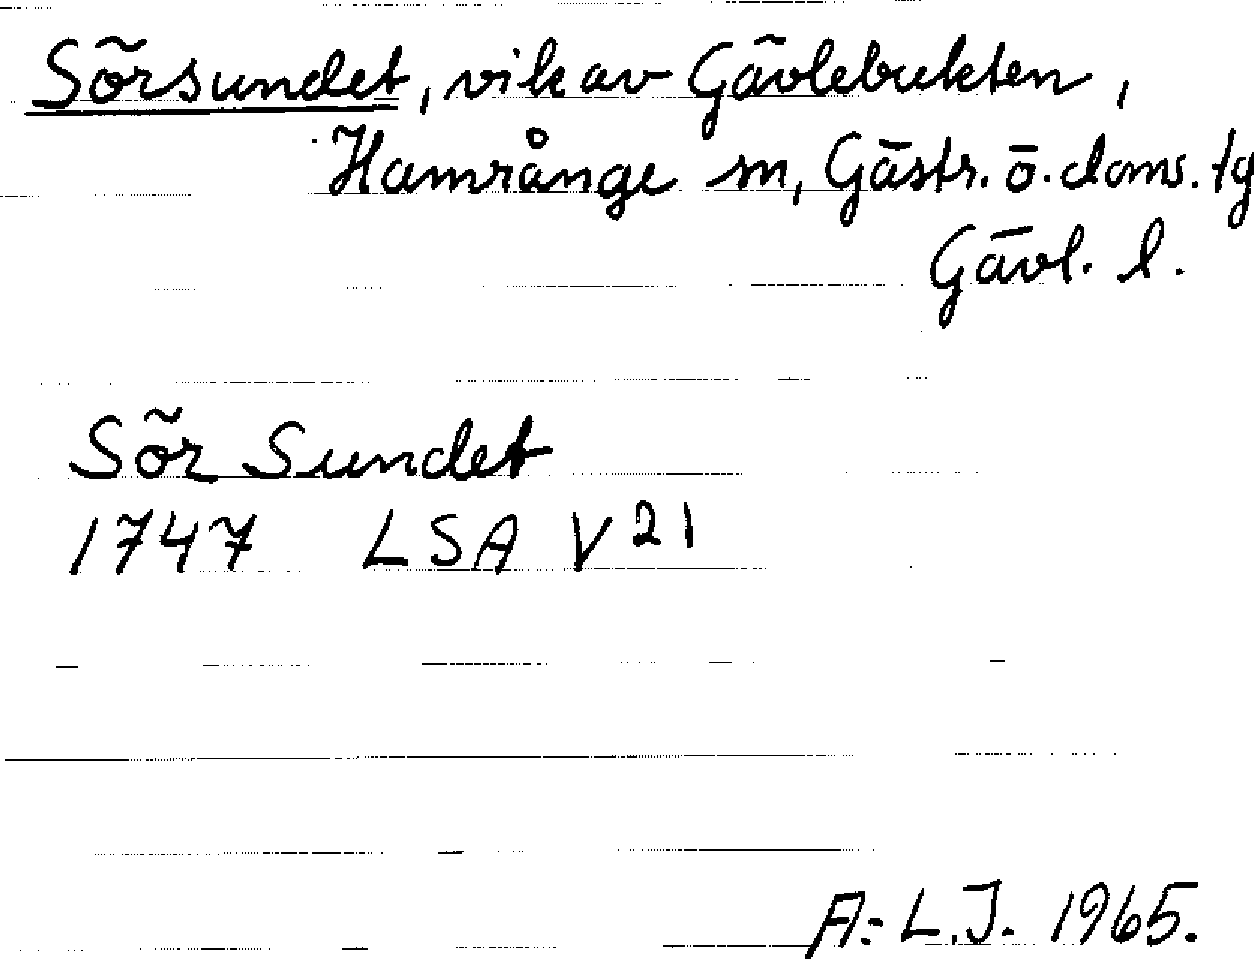 Sörsundet, vik av Gävlebukten,
Hamrånge sn, Gästr. ö. doms. tg
Gävl. l.
Sör Sundet
1747 LSA V 21
A.-L.J. 1965.